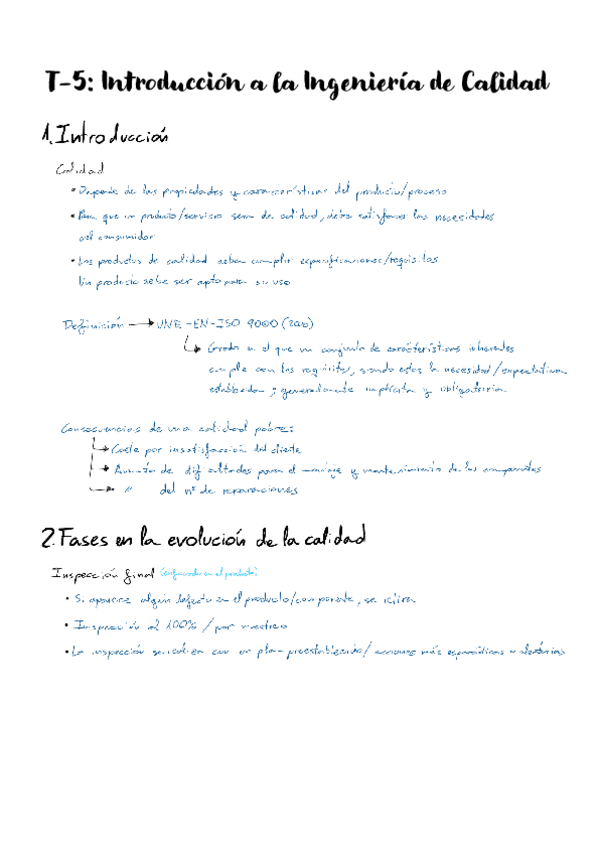 T-5: Introducción a la Ingeniería de Calidad
1. Introducción
Calidad
• Depende de las propiedades y características del producto/proceso
• Para que un producto/servicio sea de calidad, debe satisfacer las necesidades
del consumidor
• Los productos de calidad deben cumplir especificaciones/requisitos
Un producto debe ser apto para su uso
Definición → UNE-EN-ISO 9000
Grado en el que un conjunto de características inherentes
cumple con los requisitos, siendo estos la necesidad/expectativa
establecida; generalmente implícita y obligatoria
Consecuencias de una calidad pobre:
→ Coste por insatisfacción del cliente
→ Aumento de dificultades para el montaje y mantenimiento de los componentes
→ " del nº de reparaciones
2. Fases en la evolución de la calidad
Inspección final (enfocado en el producto)
• Si aparece algún defecto en el producto/componente, se retira
• Inspección al 100% / por muestreo
• La inspección se con un plan preestablecido/ acciones más esporádicas o aleatorias